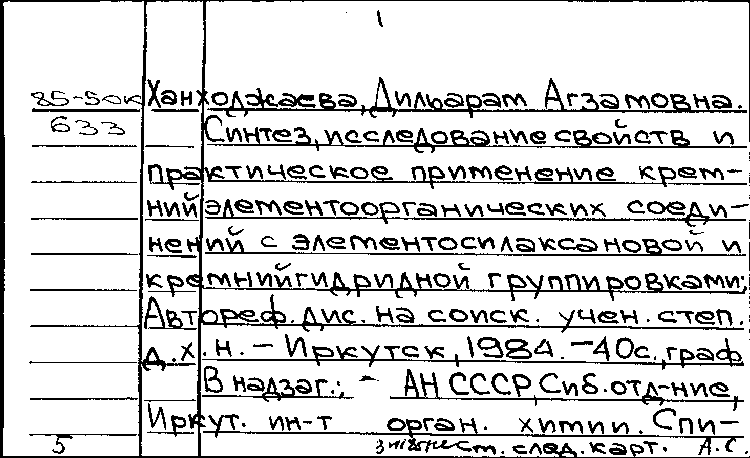 1
85-50к Ханходжаева, Дильарам Агзамовна.
633 Синтез, исследование свойств и
практическое применение крем-
нийэлементоорганических соеди-
нений с элементосилаксановой и
кремнийгидридной группировками;
Автореф. дис. на соиск. учен. степ.
д.х.н. - Иркутск, 1984. - 40с., граф
В надзаг.: - АН СССР, Сиб. отд-ние,
Иркут. ин-т орган. химии. Спи-
5 см. след. карт. А.С.